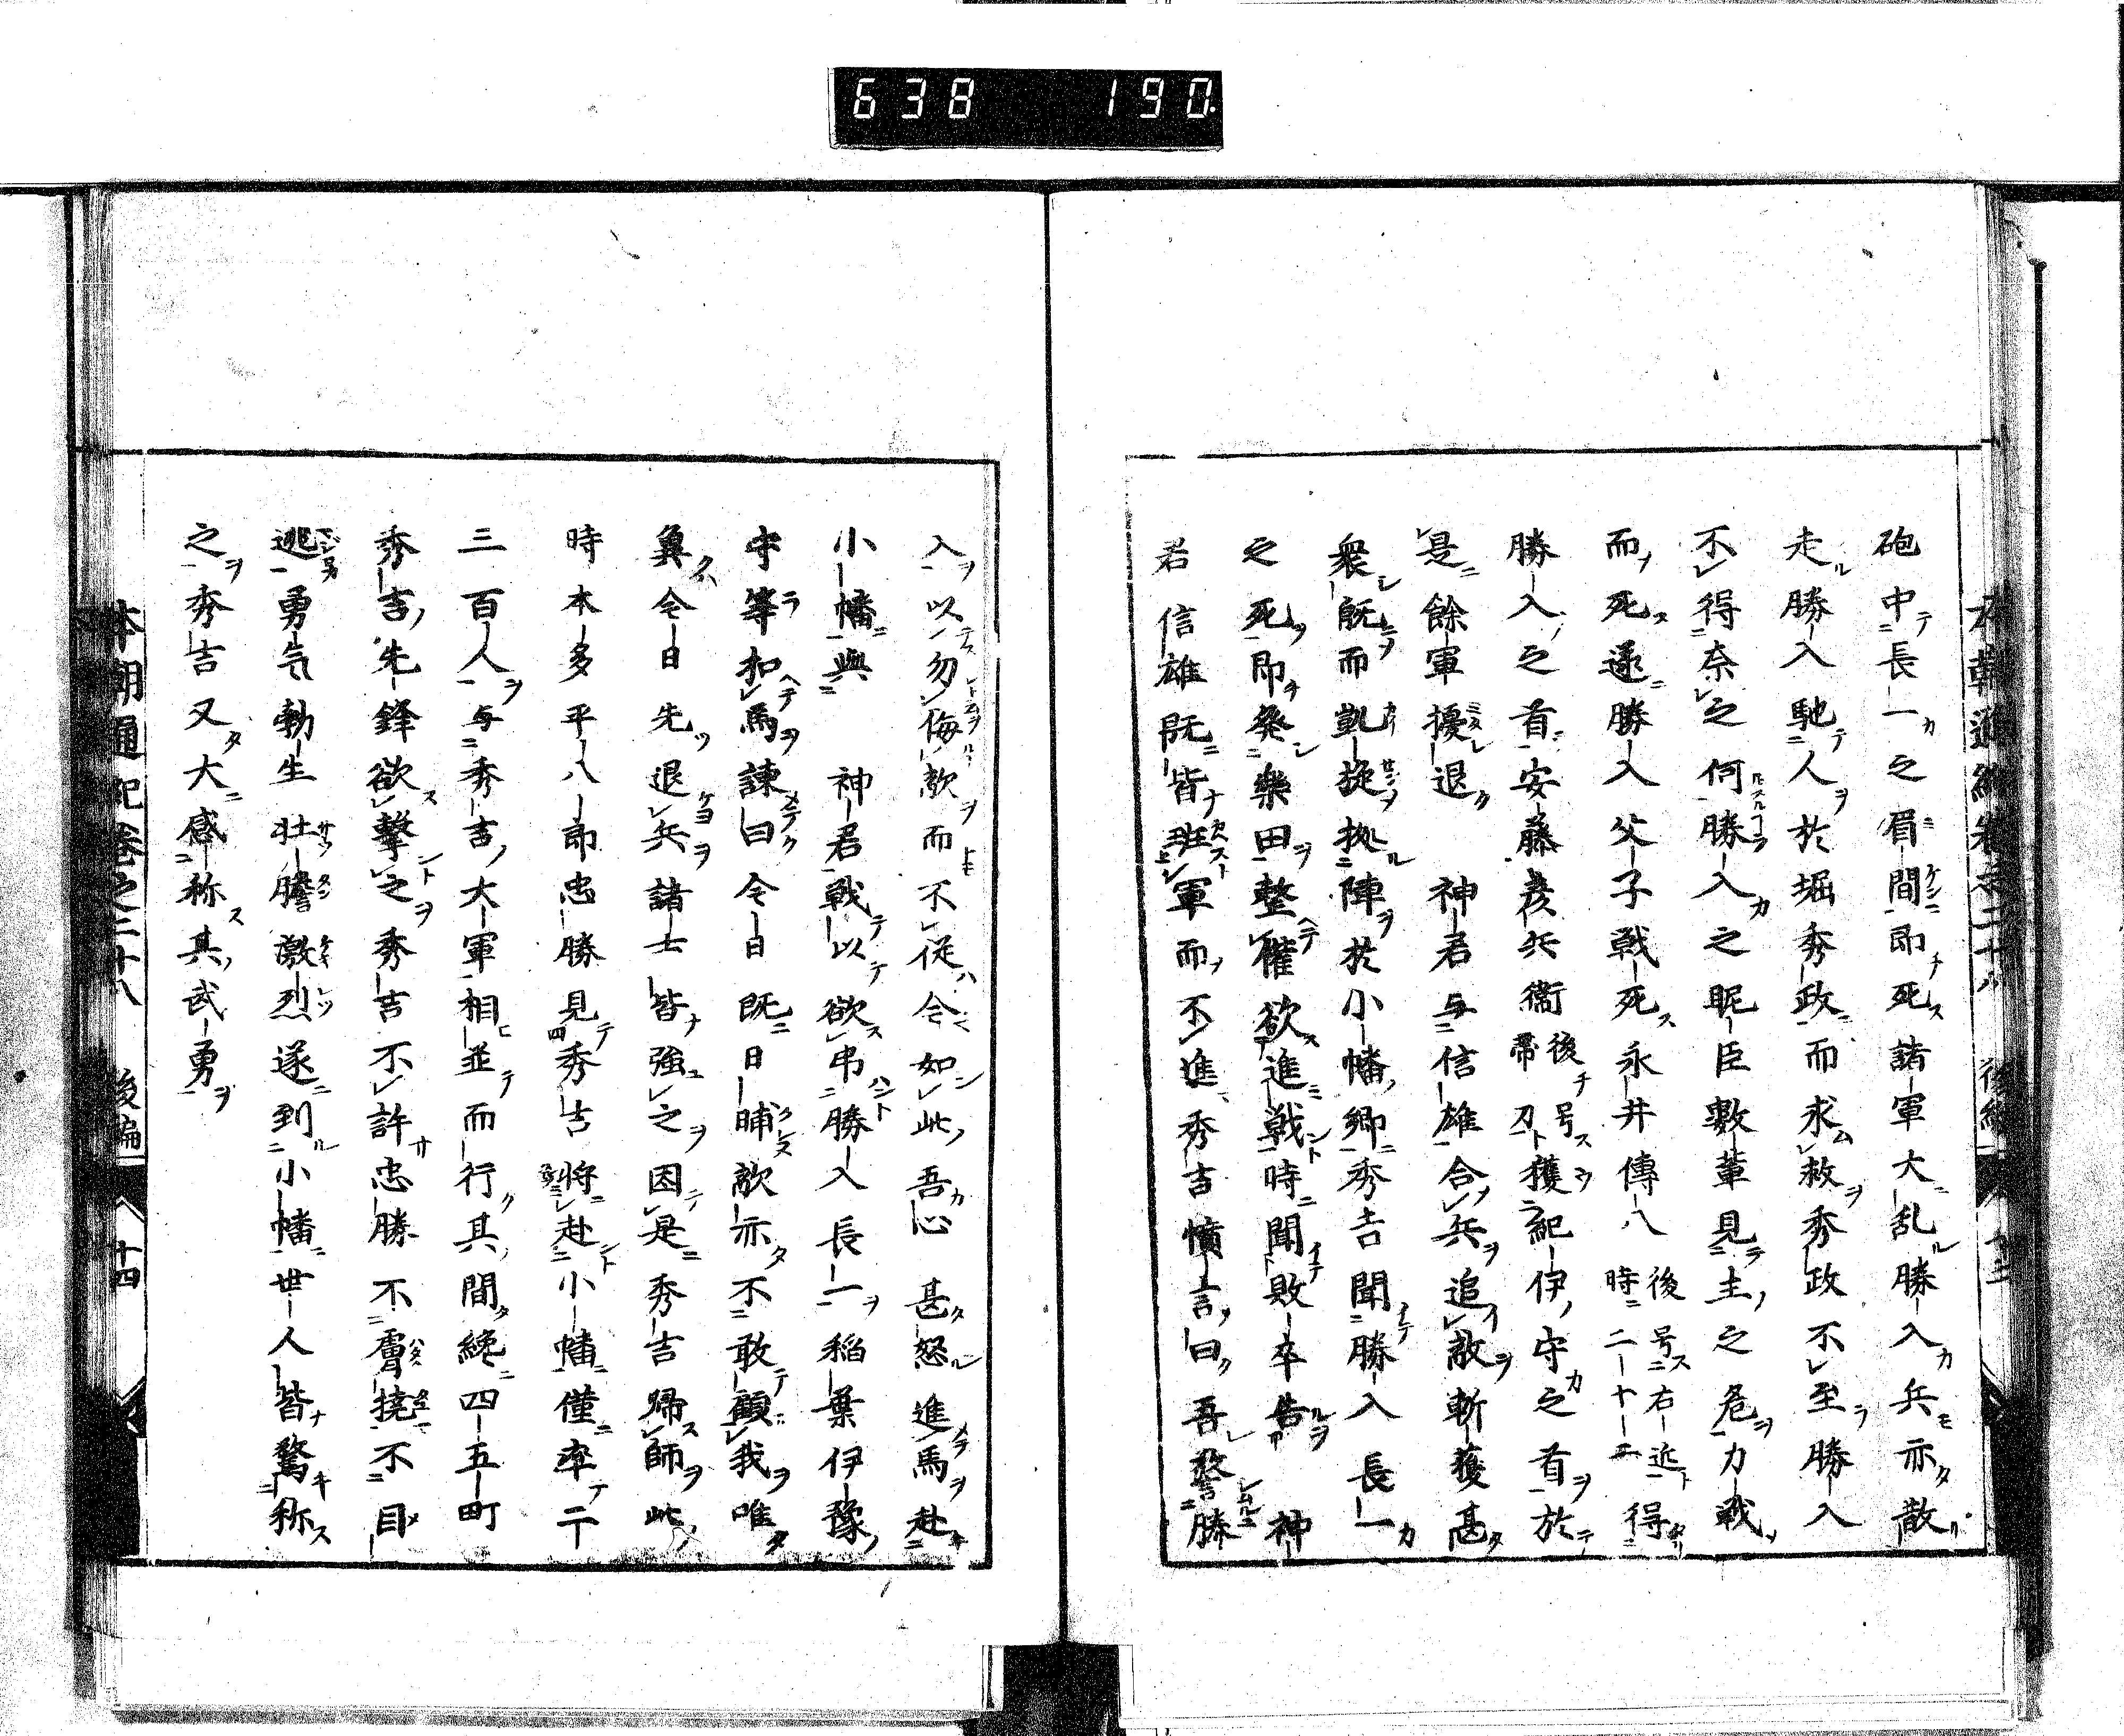 638 190.
砲中長一之眉間即死諸軍大乱勝入兵亦散
走勝入馳人於堀秀政而求救秀政不至勝入
不得奈之何勝入之昵臣數輩見主之危力戦
而死遂勝入父子戦死永井傳八後号右近時二十二得
勝入之首安藤彦兵衞後号帯刀獲紀伊守之首於
是餘軍擾退 神君与信雄合兵追敵斬獲甚
衆既而凱旋拠陣於小幡卿秀吉聞勝入長一
之死即発楽田整權欲進戦時聞敗卒告 神
若信雄既皆班軍而不進秀吉憤言曰吾警勝
入以勿侮敵而不従今如此吾心甚怒進馬赴
小幡與 神君戦以欲弔勝入長一稲葉伊豫
守等扣馬諫曰今日既日晡敵亦不敢顧我唯
冀今日先退兵諸士皆強之因是秀吉帰師此
時本多平八郎忠勝見秀吉将赴小幡僅率二
三百人与秀吉大軍相並而行其間纔四五町
秀吉先鋒欲撃之秀吉不許忠勝不膚撓不目
逃勇气勃生壮膽激烈遂到小幡世人皆驚称
之秀吉又大感称其武勇
本朝通紀巻之二十八 後編 十四